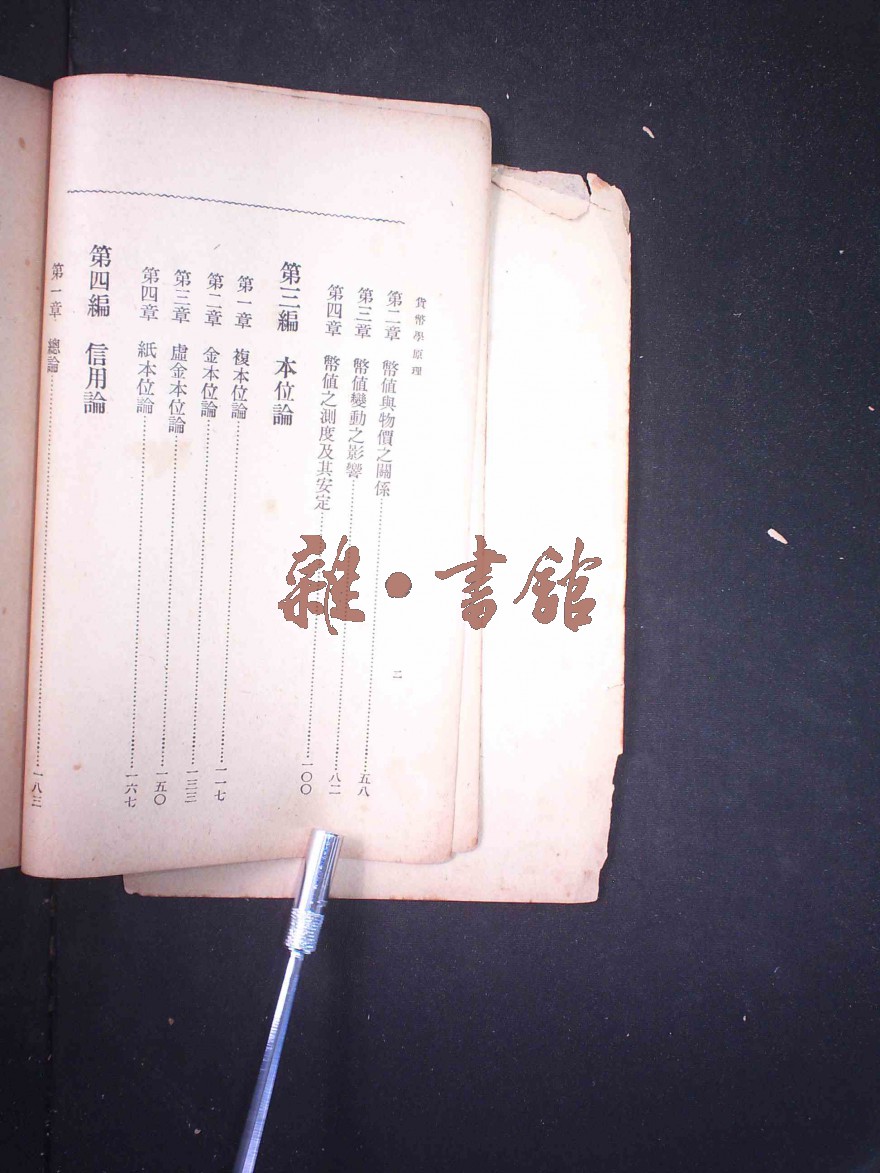 貨幣學原理
二
第二章 幣値與物價之關係 五八
第三章 幣値變動之影響 八二
第四章 幣値之測度及其安定 一〇〇
第三編 本位論
第一章 複本位論 一一七
第二章 金本位論 一三三
第三章 虛金本位論 一五〇
第四章 紙本位論 一六七
第四編 信用論
第一章 總論 一八三
雜·書館